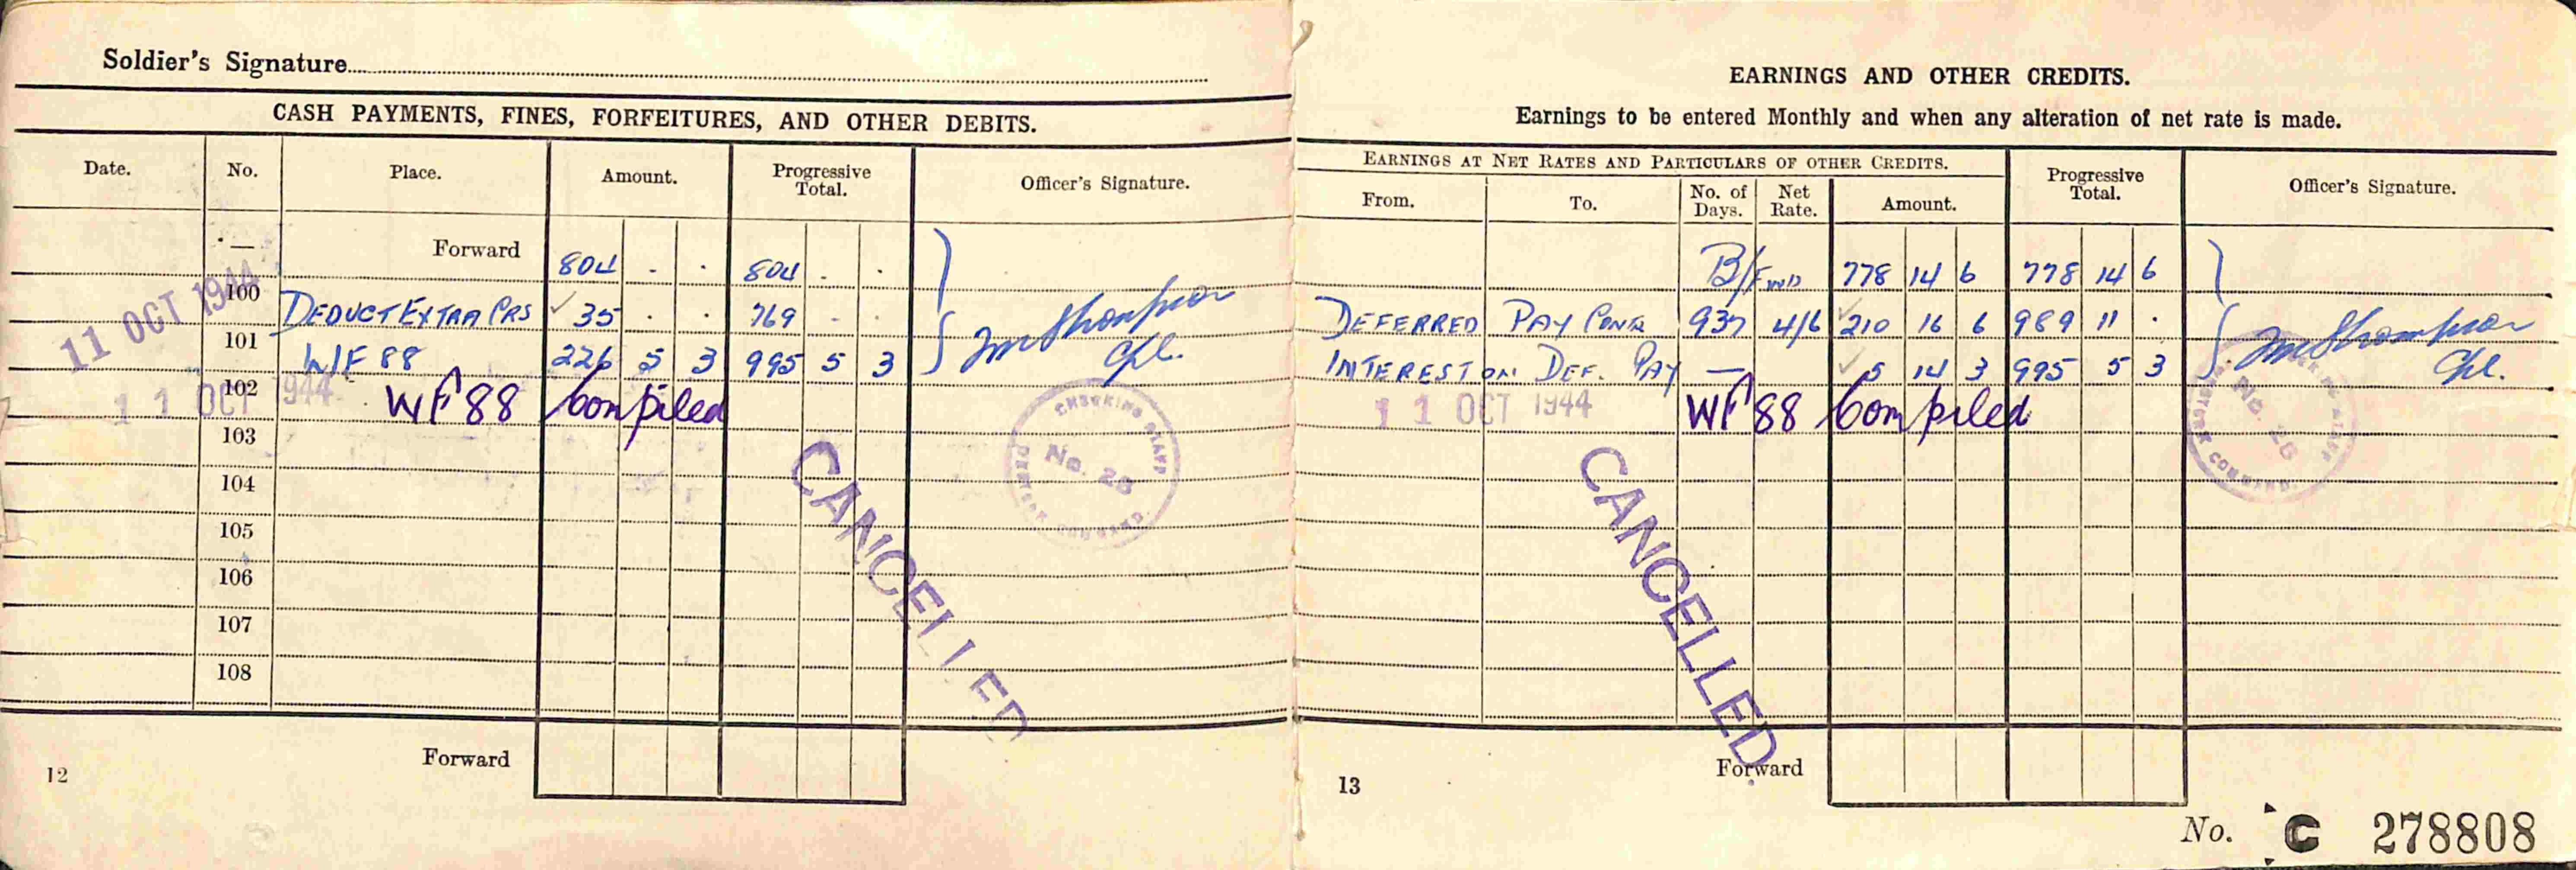 Soldier's Signature
CASH PAYMENTS, FINES, FORFEITURES, AND OTHER DEBITS.
Date. No. Place. Amount. Progressive Total. Officer's Signature.
Forward 804 . . 804 . .
11 OCT 1944 100 DEDUCT EXTRA PRS 35 . . 769 . .
101 W/F 88 226 5 3 995 5 3
Cpl.
11 OCT 1944 102 WF 88 Compiled
103
104
105
106
107
108
CHECKING STAFF
No. 26
CANCELLED
Forward
12
EARNINGS AND OTHER CREDITS.
Earnings to be entered Monthly and when any alteration of net rate is made.
EARNINGS AT NET RATES AND PARTICULARS OF OTHER CREDITS.
From. To. No. of Days. Net Rate. Amount. Progressive Total. Officer's Signature.
B/FWD 778 14 6 778 14 6
DEFERRED PAY 937 4/6 210 16 6 989 11 .
INTEREST ON DEF. PAY — 5 14 3 995 5 3
Cpl.
11 OCT 1944 WF 88 Compiled
No. 26
COMMAND.
CANCELLED.
Forward
13
No. C 278808